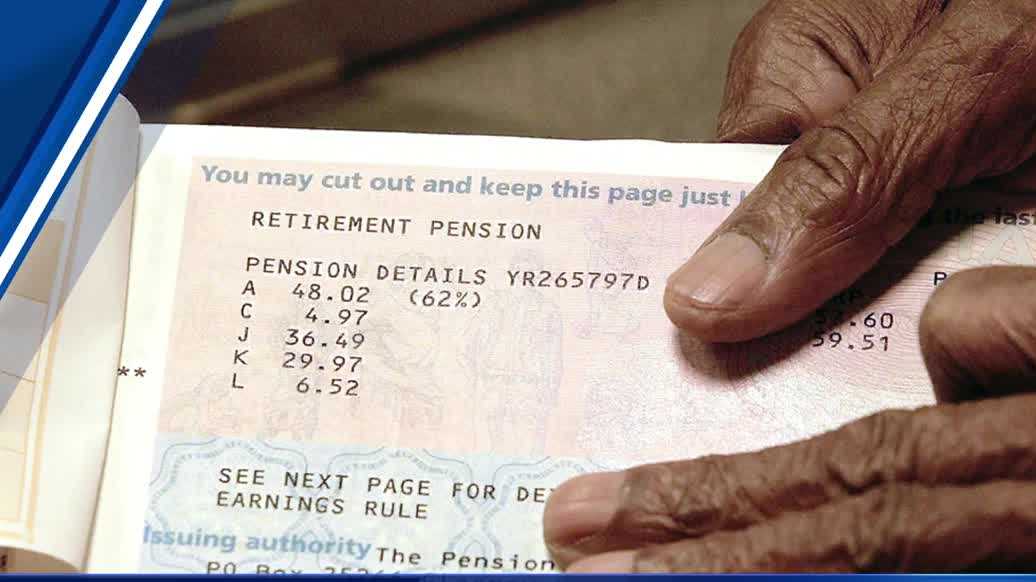 You may cut out and keep this page just
the last
RETIREMENT PENSION
PENSION DETAILS YR265797D
A 48.02 (62%)
C 4.97 .60
J 36.49 59.51
K 29.97
L 6.52
**
SEE NEXT PAGE FOR
EARNINGS RULE
Issuing authority The Pension
PO Box